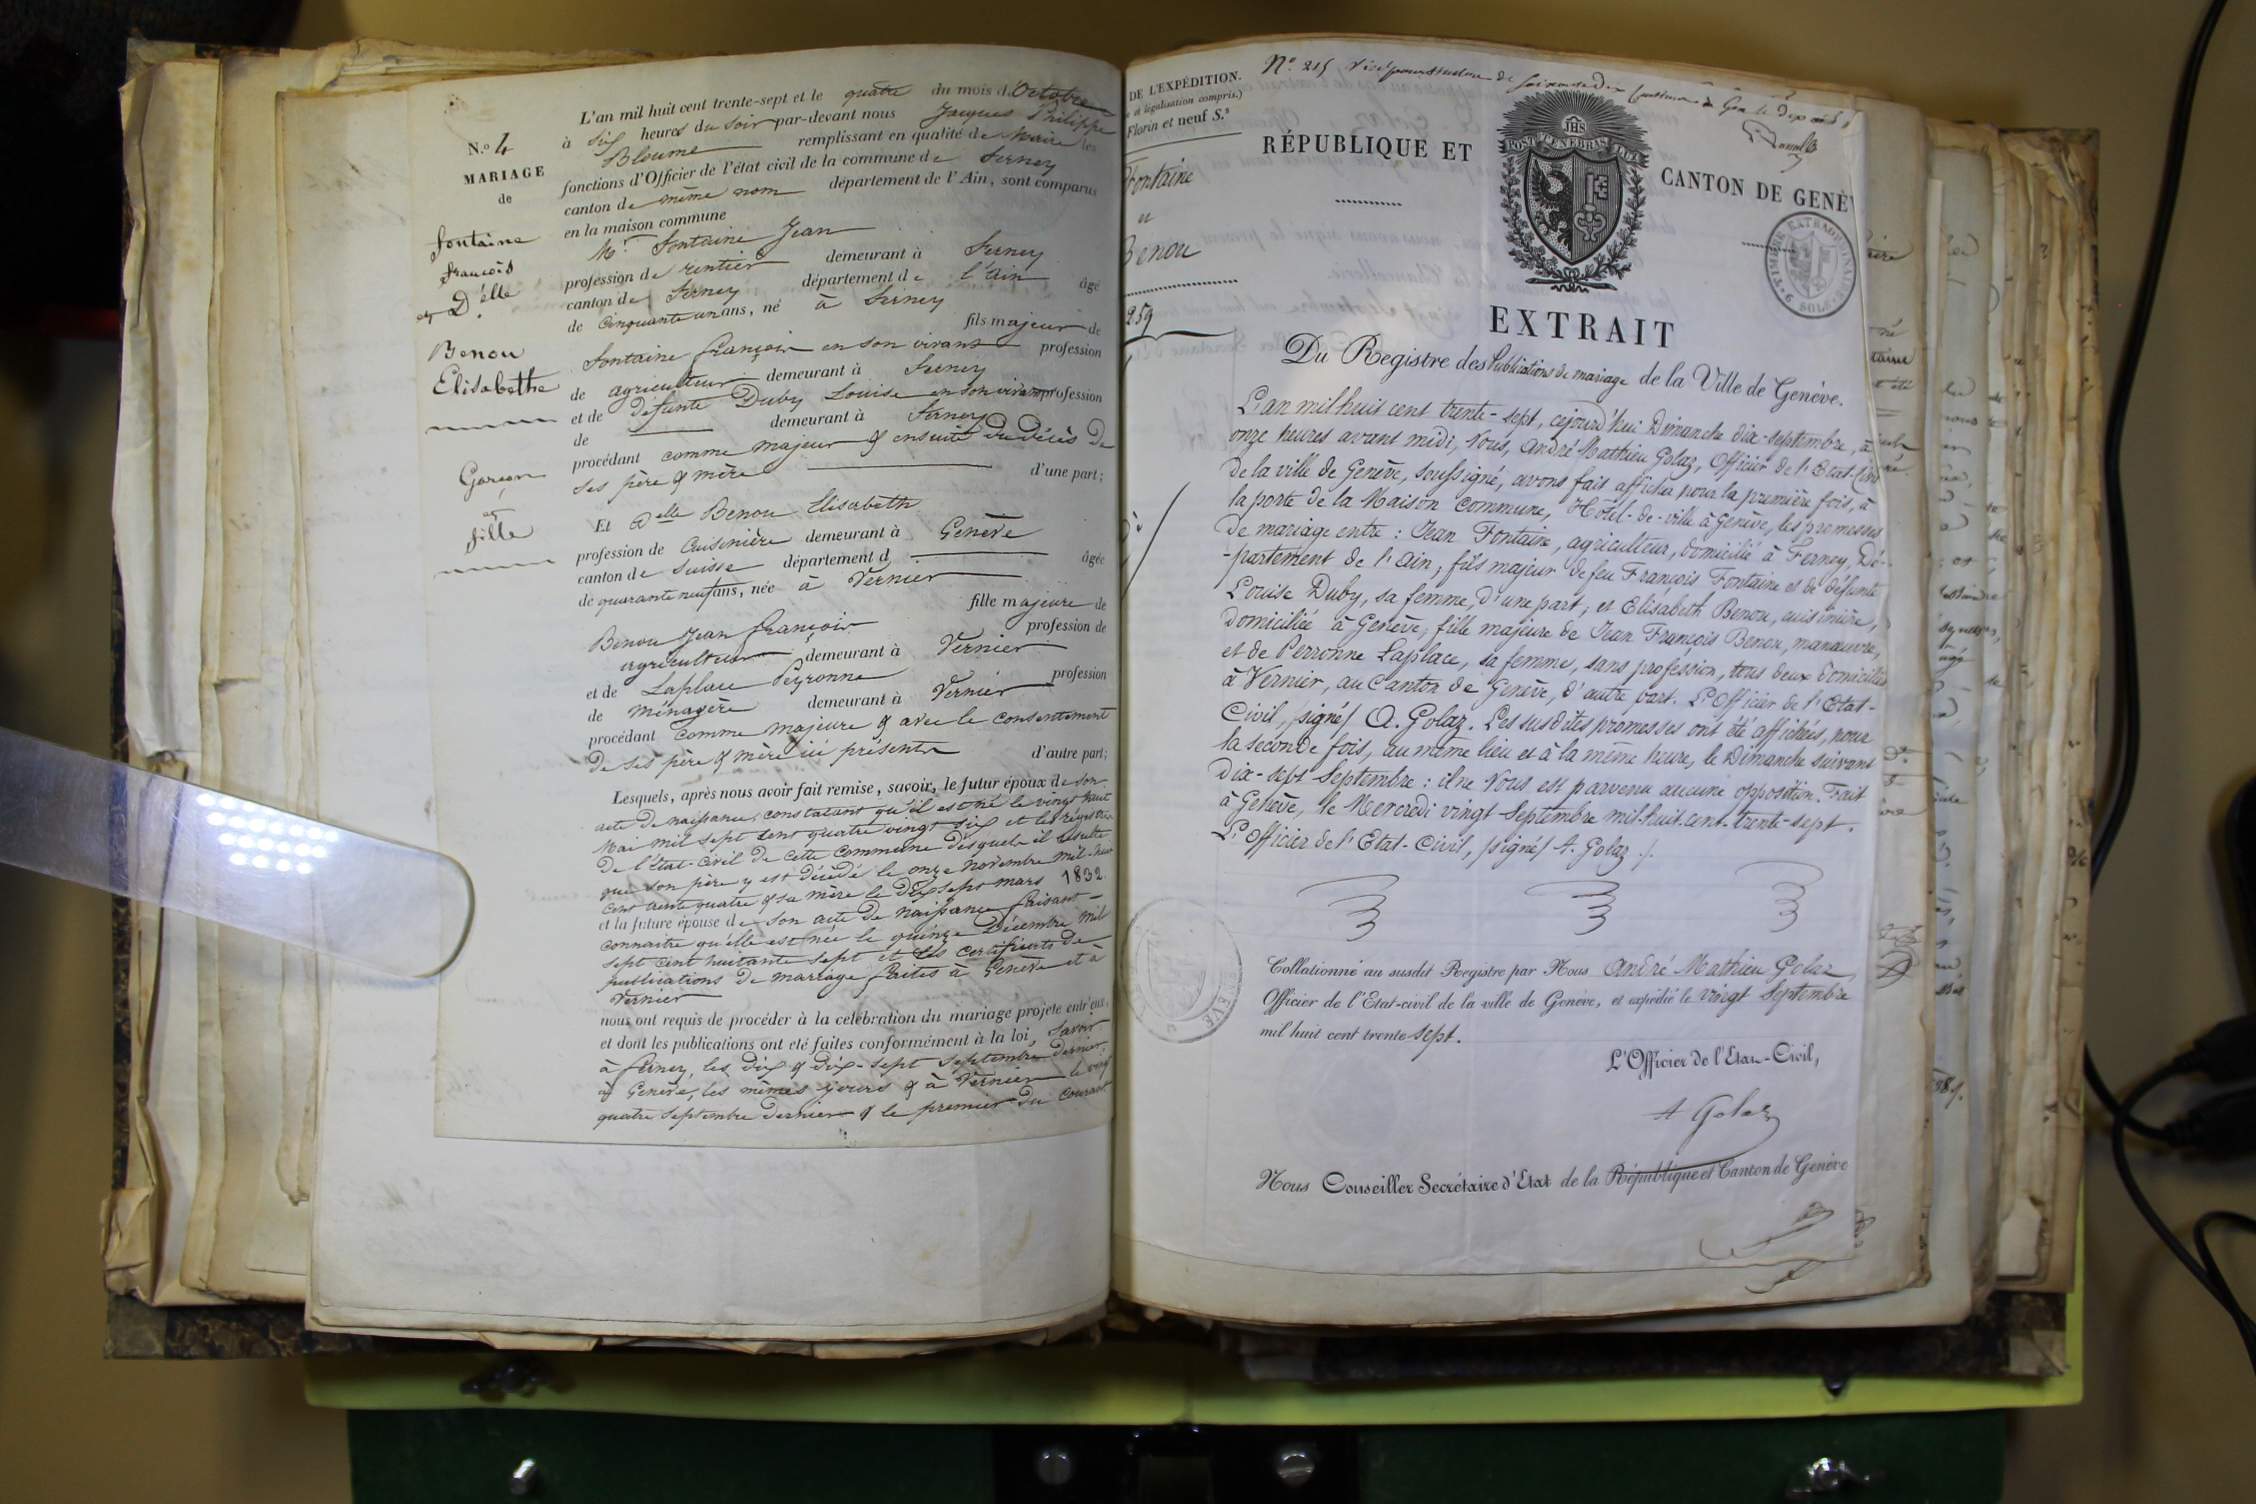 N.º 4
MARIAGE
de
Fontaine
François
et D.elle
Benou
Elisabethe
Garçon
et
fille
L'an mil huit cent trente-sept et le quatre du mois d'Octobre
à six heures du soir par-devant nous Jacques Philippe
Bloume remplissant en qualité de Maire les
fonctions d'Officier de l'état civil de la commune de Ferney
canton de même nom département de l'Ain, sont comparus
en la maison commune
Mr. Fontaine Jean
profession de rentier demeurant à Ferney
canton de Ferney département de l'Ain âgé
de cinquante un ans, né à Ferney
fils majeur de
Fontaine françois en son vivant profession
de agriculteur demeurant à Ferney
et de défunte Duby Louise en son vivant profession
de demeurant à Ferney
procédant comme majeur & ensuite du décès de
ses père & mère d'une part;
Et Delle Benou Elisabeth
profession de Cuisinière demeurant à Genève
canton de Suisse département d âgée
de quarante neuf ans, née à Vernier
fille majeure de
Benou Jean françois profession de
agriculteur demeurant à Vernier
et de Laplace Peyronne profession
de ménagère demeurant à Vernier
procédant comme majeure & avec le consentement
de ses père & mère ici présents d'autre part;
Lesquels, après nous avoir fait remise, savoir, le futur époux de son
acte de naissance, constatant qu'il est né le vingt huit
Mai mil sept cent quatre vingt six et les registres
de l'Etat-civil de cette commune desquels il résulte
que son père y est décédé le onze novembre mil-huit
cent trente quatre & sa mère le dix sept mars 1832.
et la future épouse de son acte de naissance faisant
connaitre qu'elle est née le quinze Décembre mil
sept cent huitante sept et les certificats de
publications de mariage faites à Genève et à
Vernier
nous ont requis de procéder à la célébration du mariage projeté entr'eux,
et dont les publications ont été faites conformément à la loi, savoir
à ferney, les dix & dix-sept septembre dernier,
à Genève, les mêmes jours & à Vernier le vingt
quatre septembre dernier & le premier du courant
DE L'EXPÉDITION.
et légalisation compris.)
Florin et neuf S.s
Fontaine
et
Benou
259
Nº. 215 Visé pour timbre de
soixante dix centimes à Gex le dix
RÉPUBLIQUE ET
CANTON DE GENÈV
JHS
POST TENEBRAS LUX
TIMBRE EXTRAORDINAIRE
6 SOLS
EXTRAIT
Du Registre des Publications de mariage de la Ville de Genève.
L'an mil huit cent trente-sept, cejourd'hui Dimanche dix-septembre, à
onze heures avant midi, Nous, André Mathieu Golaz, Officier de l'Etat-Civil
de la ville de Genève, soussigné, avons fait afficher pour la première fois, à
la porte de la Maison Commune, Hôtel-de-ville à Genève, les promesses
de mariage entre : Jean Fontaine, agriculteur, domicilié à Ferney, Dé-
-partement de l'Ain, fils majeur de feu François Fontaine et de défunte
Louise Duby, sa femme, d'une part; et Elisabeth Benou, cuisinière,
domiciliée à Genève, fille majeure de Jean François Benou, manœuvre,
et de Perronne Laplace, sa femme, sans profession, tous deux domiciliés
à Vernier, au Canton de Genève, d'autre part. L'Officier de l'Etat-
Civil, /signé/ A. Golaz. Les susdites promesses ont été affichées, pour
la seconde fois, au même lieu et à la même heure, le Dimanche suivant
dix-sept Septembre : il ne Nous est parvenu aucune opposition. Fait
à Genève, le Mercredi vingt Septembre mil-huit-cent-trente-sept.
L'Officier de l'Etat-Civil, /signé/ A. Golaz ./.
Collationné au susdit Registre par Nous André Mathieu Golaz
Officier de l'Etat-civil de la ville de Genève, et expédié le vingt Septembre
mil huit cent trente sept.
L'Officier de l'Etat-Civil,
A Golaz
Nous Conseiller Secrétaire d'Etat de la République et Canton de Genève